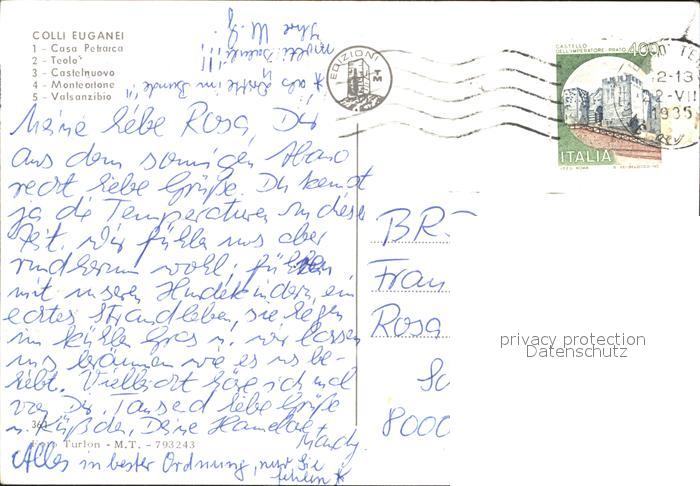 COLLI EUGANEI
1 - Casa Petrarca
2 - Teolo
3 - Castelnuovo
4 - Monteortone
5 - Valsanzibio
EDIZIONI
TM
CASTELLO
DELL'IMPERATORE - PRATO
400
ITALIA
12-13
2-VII
1985
Meine liebe Rosa, Dir
aus dem sonnigen Abano
recht liebe Grüße. Du kennst
ja die Temperaturen in dieser
Zeit. Wir fühlen uns aber
rundherum wohl, führen
mit unseren Hundekindern, ein
echtes Strandleben, sie liegen
im kühlen Gras u. wir lassen
uns bräunen wie es uns be-
liebt. Vielleicht höre ich mal
von Dir. Tausend liebe Grüße
u. Küßder, Deine
Mandy
Alles in bester Ordnung, nur Sie
fehlen
Turlon - M.T. - 793243
BR-
Frau
Rosa
8000
privacy protection
Datenschutz